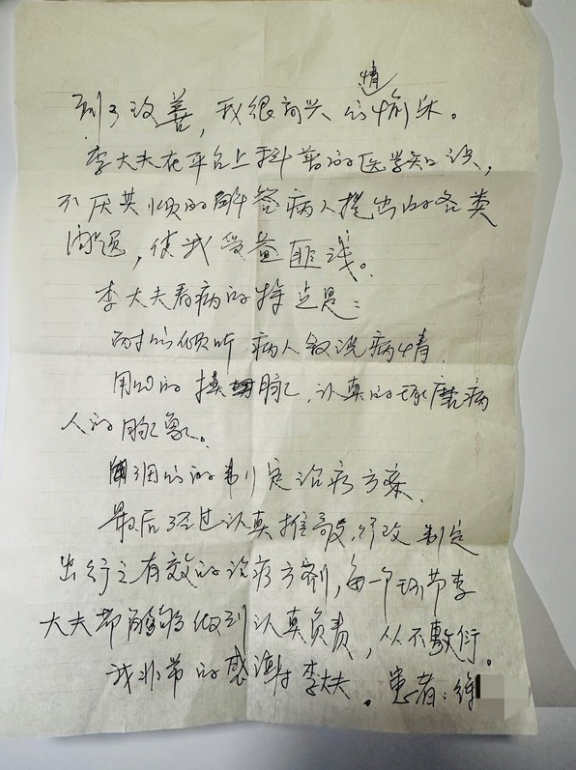 到了改善，我很高兴心情愉快。
李大夫在平台上科普的医学知识，
不厌其烦的解答病人提出的各类
问题，使我受益匪浅。
李大夫看病的特点是：
耐心倾听病人叙说病情
用心的摸脉，认真的琢磨病
人的脉象。
细心的制定治疗方案
最后经过认真推敲修改制定
出行之有效的治疗方剂，每一个环节李
大夫都能够做到认真负责，从不敷衍。
我非常的感谢李大夫。患者：徐